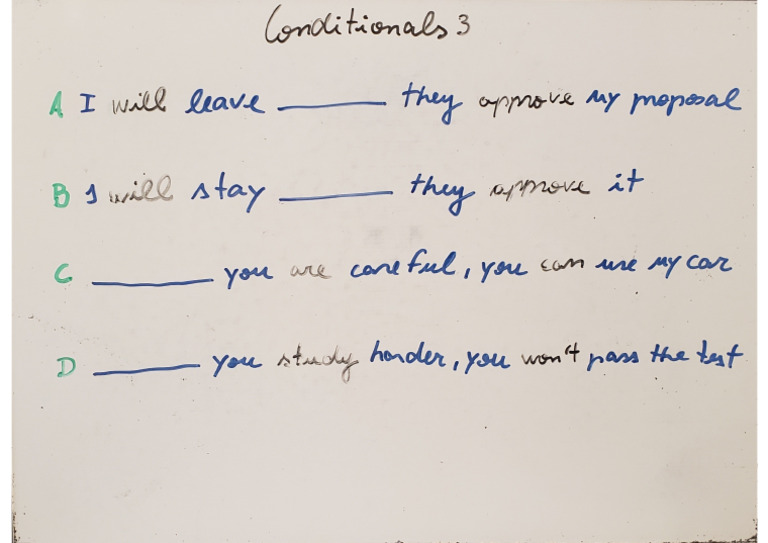 Conditionals 3
A I will leave ______ they approve my proposal
B I will stay ______ they approve it
C ______ you are careful, you can use my car
D ______ you study harder, you won't pass the test